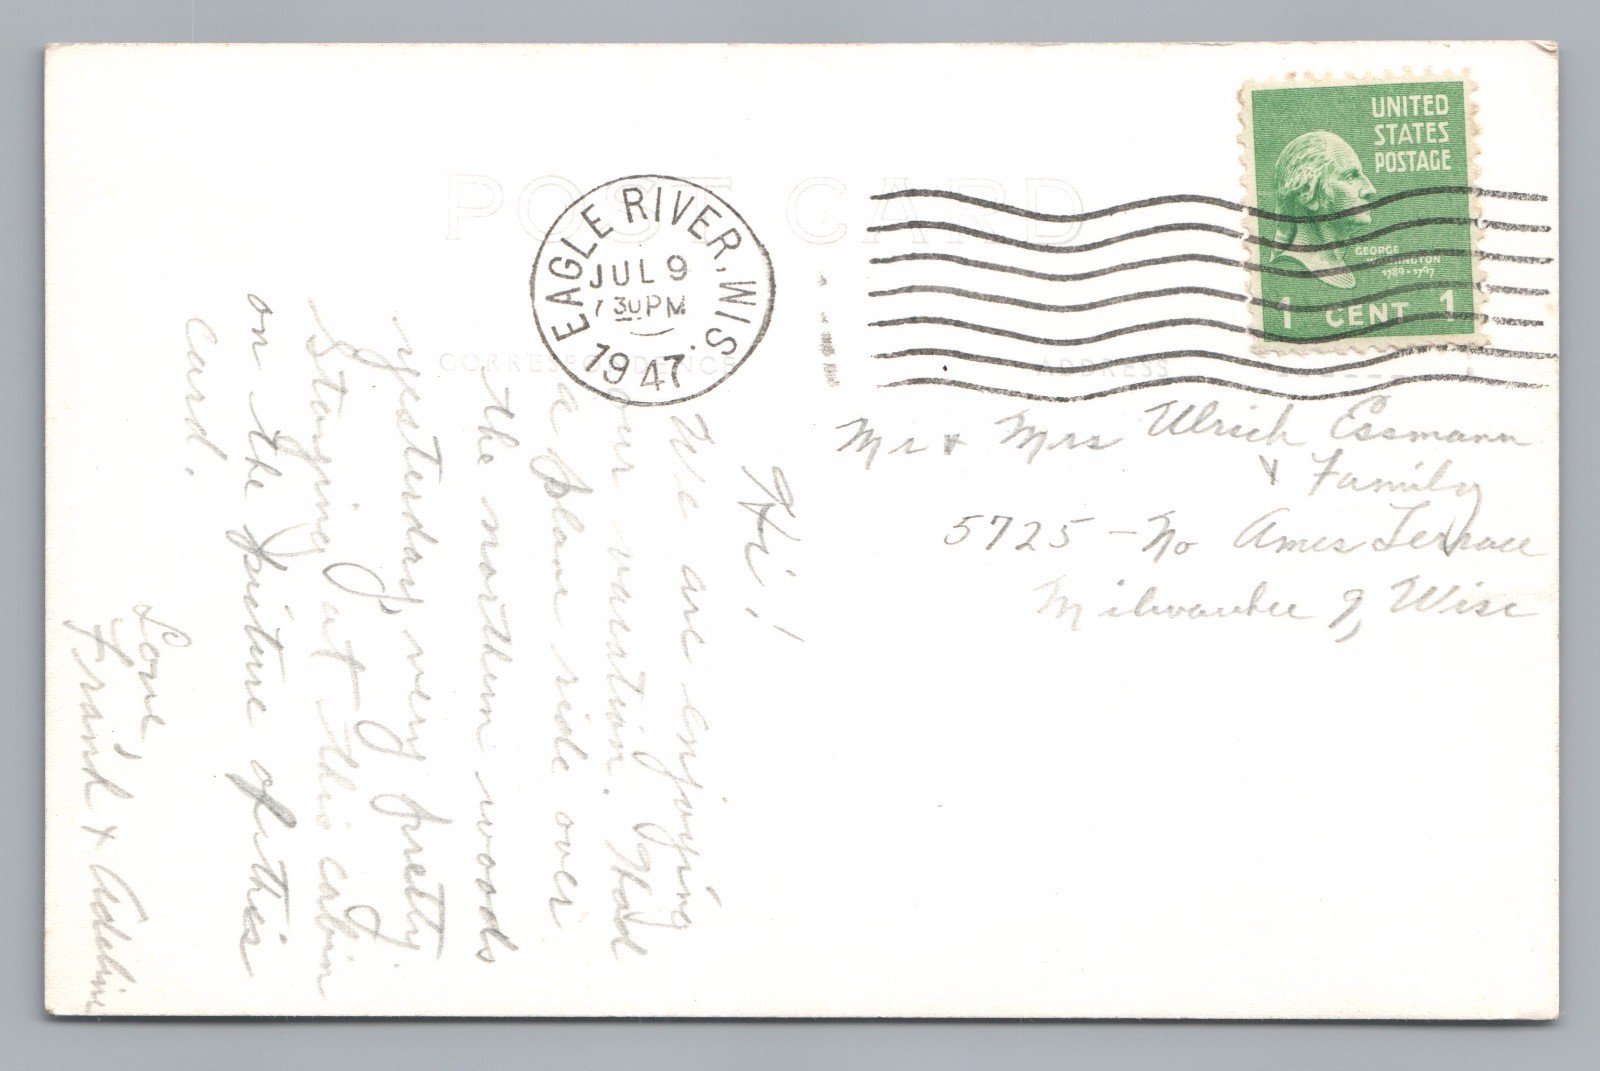 POST CARD
CORRESPONDENCE
ADDRESS
EAGLE RIVER, WIS.
JUL 9
7 30 PM
1947
UNITED
STATES
POSTAGE
GEORGE
WASHINGTON
1789-1797
1 CENT 1
Mr & Mrs Ulrich Essmann
& Family
5725 - No Ames Terrace
Milwaukee 9, Wisc
Hi!
We are enjoying
our vacation. Had
a plane ride over
the northern woods
yesterday, very pretty.
Staying at this cabin
on the picture of this
card.
Love,
Frank & Adeline